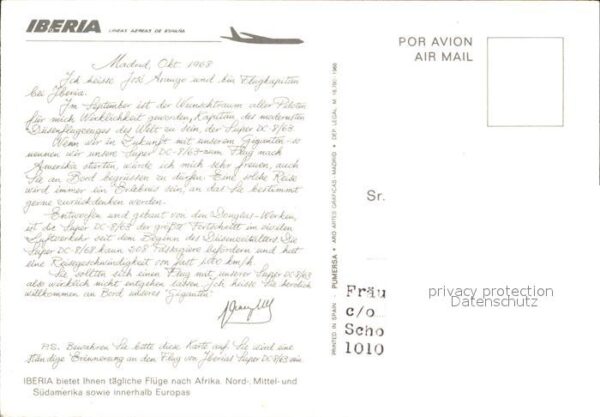 IBERIA LINEAS AEREAS DE ESPAÑA
Madrid, Okt. 1968
Ich heisse José Araujo und bin Flugkapitän
bei Iberia.
Im September ist der Wunschtraum aller Piloten
für mich Wirklichkeit geworden, Kapitän des modernsten
Düsenflugzeuges der Welt zu sein, der Super DC-8/63.
Wenn wir in Zukunft mit unserem Giganten - so
nennen wir unsere Super DC-8/63 - zum Flug nach
Amerika starten, würde ich mich sehr freuen, auch
Sie an Bord begrüssen zu dürfen. Eine solche Reise
wird immer ein Erlebnis sein, an das Sie bestimmt
gerne zurückdenken werden.
Entworfen und gebaut von den Douglas-Werken,
ist die Super DC-8/63 der größte Fortschritt im zivilen
Luftverkehr seit dem Beginn des Düsenzeitalters. Die
Super DC-8/63 kann 208 Passagiere befördern und hat
eine Reisegeschwindigkeit von fast 1,000 km/h.
Sie sollten sich einen Flug mit unserer Super DC-8/63
also wirklich nicht entgehen lassen. Ich heisse Sie herzlich
willkommen an Bord unseres "Giganten".
P.S. Bewahren Sie bitte diese Karte auf. Sie wird eine
ständige Erinnerung an den Flug von Iberias Super DC-8/63 sein.
IBERIA bietet Ihnen tägliche Flüge nach Afrika. Nord-, Mittel- und
Südamerika sowie innerhalb Europas
PRINTED IN SPAIN - PUMERSA - ARO ARTES GRAFICAS - MADRID - DEP. LEGAL. M. 16.791 - 1968
POR AVION
AIR MAIL
Sr.
Fräu
c/o
Scho
1010
privacy protection
Datenschutz